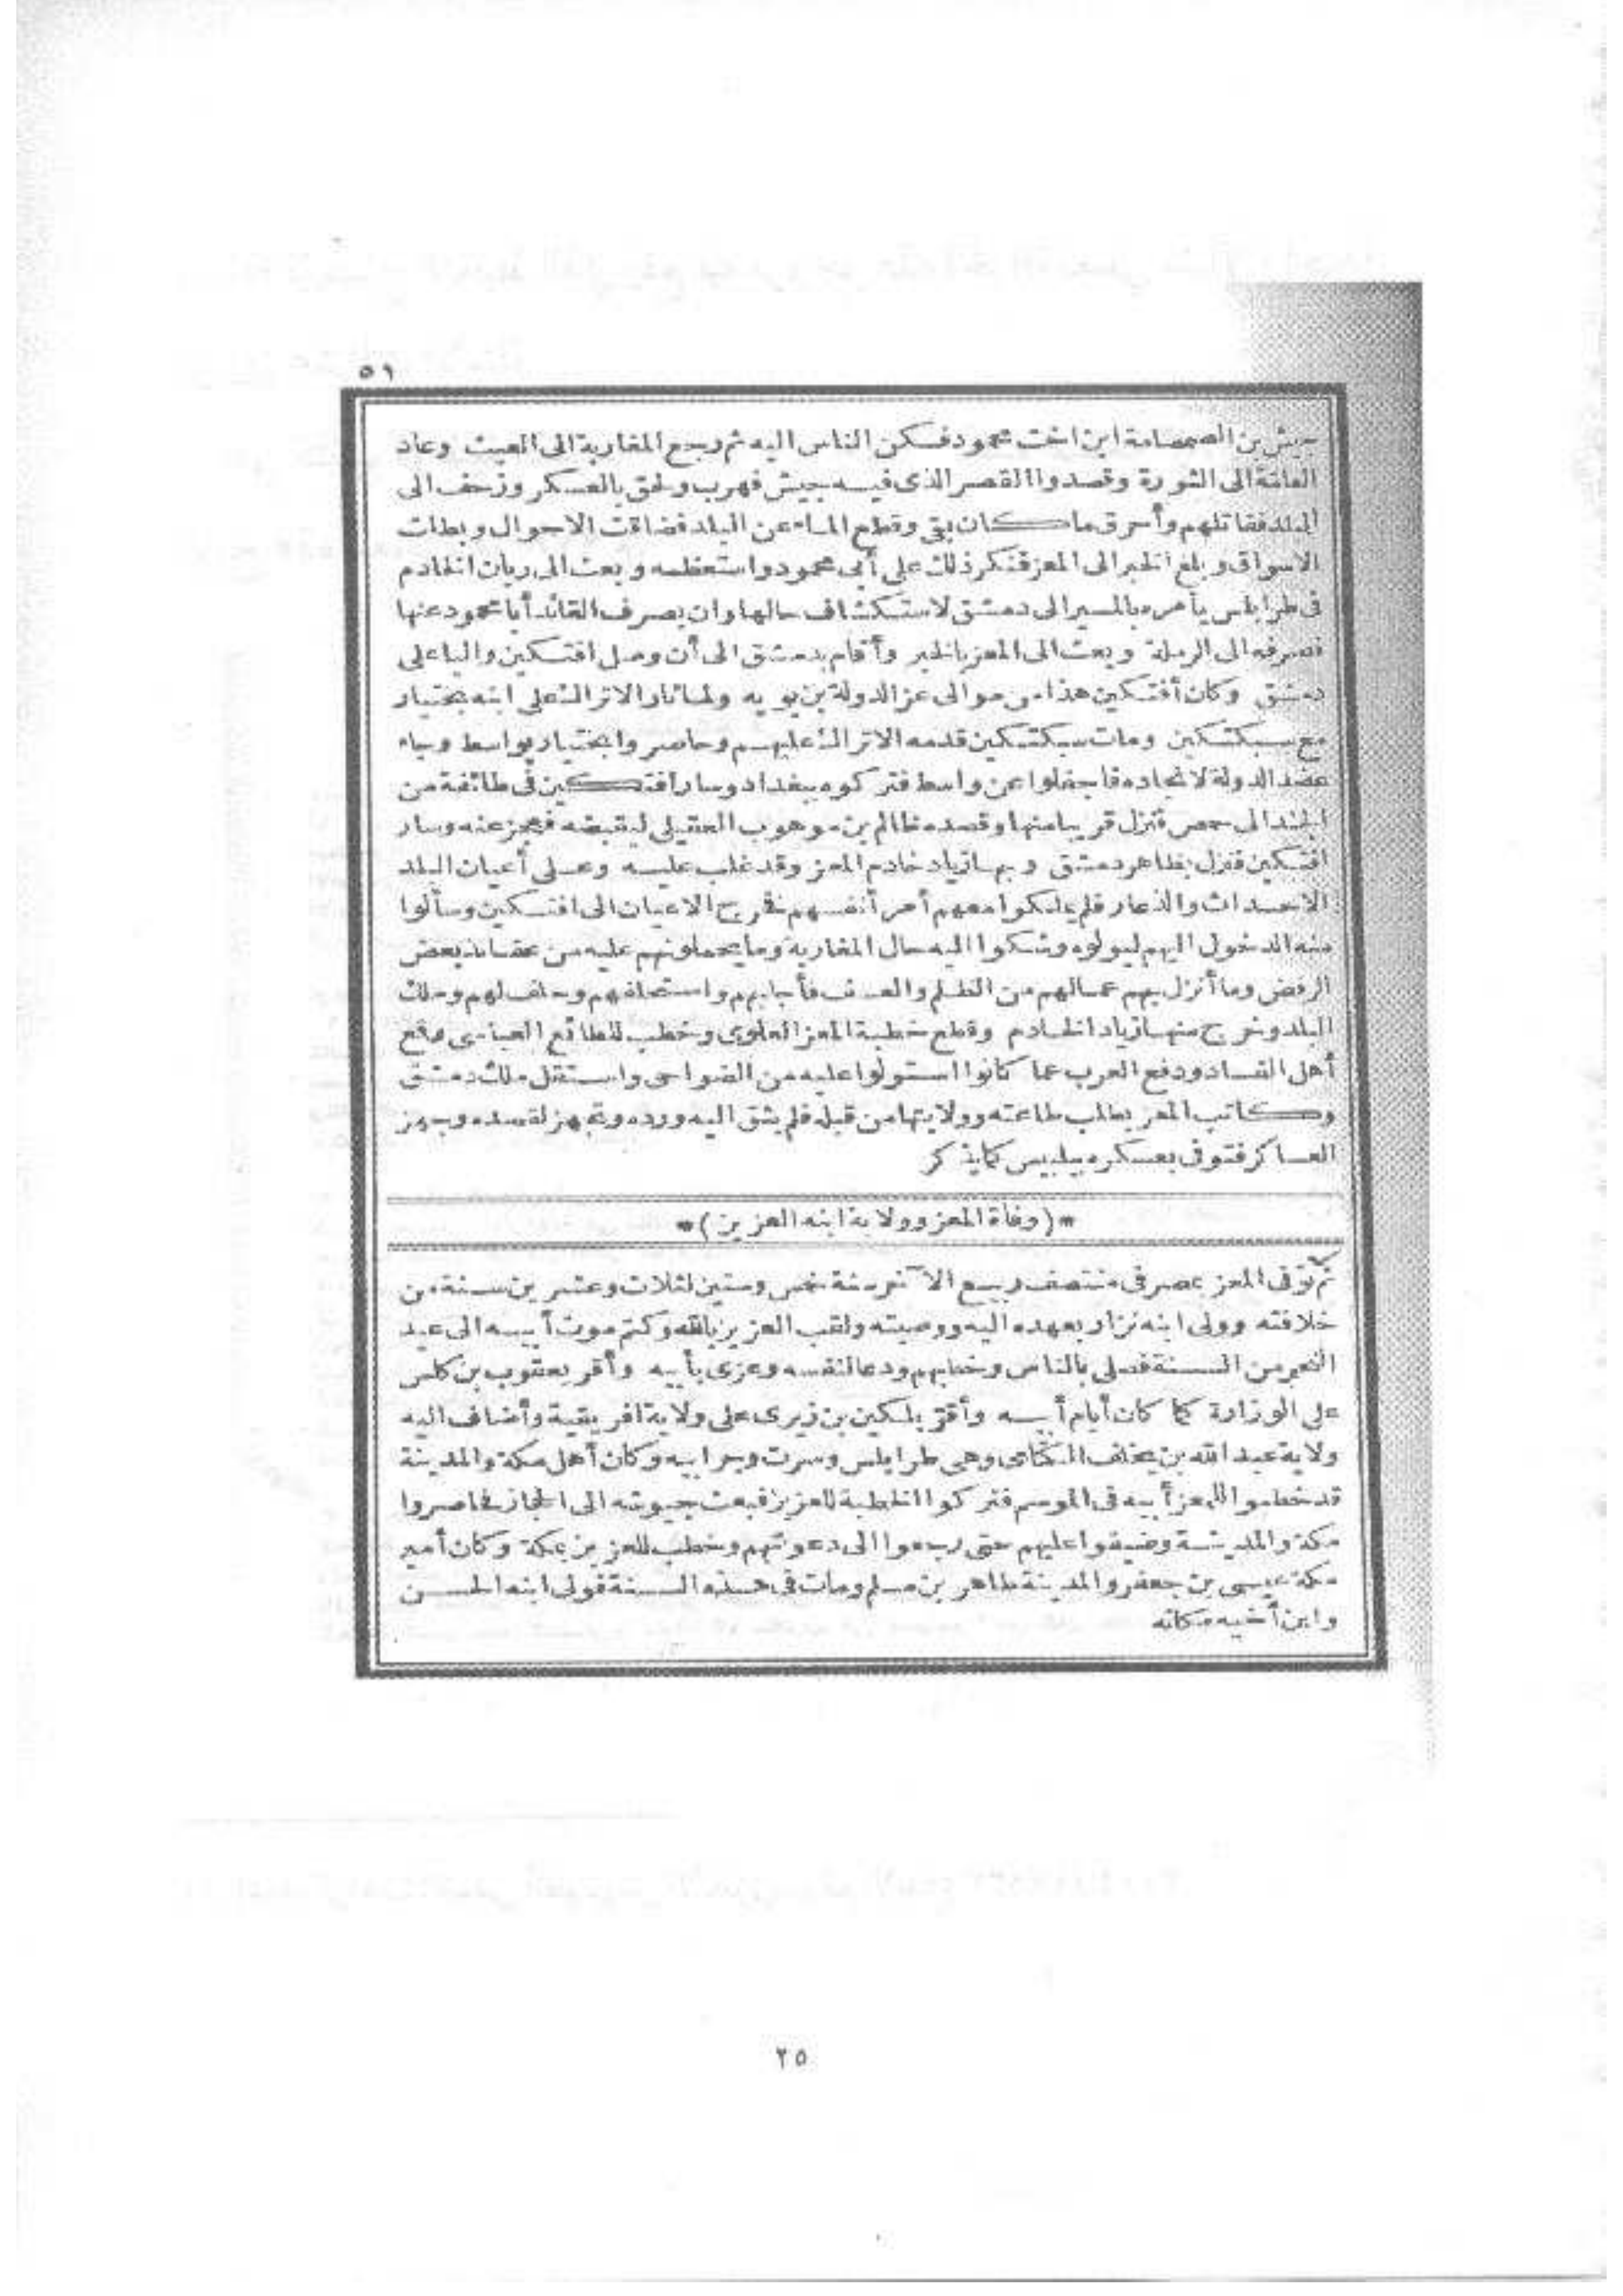 ٥١
جيش بن الصمصامة ابن اخت محمود فسكن الناس اليه ثم رجع المغاربة الى العيث وعاد
العامّة الى الثورة وقصدوا القصر الذى فيه جيش فهرب ولحق بالعسكر وزحف الى
البلد فقاتلهم وأحرق ما كان بقى وقطع الماء عن البلد فضاقت الاحوال وبطلت
الاسواق وبلغ الخبر الى المعز فنكر ذلك على أبى محمود واستعظمه وبعث الى ريان الخادم
فى طرابلس يأمره بالمسير الى دمشق لاستكشاف حالها وان يصرف القائد أبا محمود عنها
فصرفه الى الرملة وبعث الى المعز بالخبر وأقام بدمشق الى أن وصل افتكين واليا على
دمشق وكان أفتكين هذا من موالى عز الدولة بن بويه ولما ثار الاتراك على ابنه بختيار
مع سبكتكين ومات سبكتكين قدمه الاتراك عليهم وحاصروا بختيار بواسط وجاء
عضد الدولة لانجاده فاجفلوا عن واسط فتركوه ببغداد وسار افتكين فى طائفة من
الجند الى حمص فنزل قريبا منها وقصده ظالم بن موهوب العقيلى ليقبضه فعجز عنه وسار
افتكين فنزل بظاهر دمشق وبها زياد خادم المعز وقد غلب عليه وعلى أعيان البلد
الاحداث والذعار فلم يملكوا معهم أمر أنفسهم فخرج الاعيان الى افتكين وسألوا
منه الدخول اليهم ليولوه وشكوا اليه حال المغاربة وما يحملونهم عليه من عقائد بعض
الرفض وما أنزل بهم عمالهم من الظلم والعسف فأجابهم واستحلفهم وحلف لهم وملك
البلد وخرج منها زياد الخادم وقطع خطبة المعز العلوى وخطب للطائع العباسى وقمع
أهل الفساد ودفع العرب عما كانوا استولوا عليه من الضواحى واستقل ملك دمشق
وكاتب المعز بطلب طاعته وولايتها من قبله فلم يثق اليه ورده وتجهز لقصده وجهز
العساكر فتوفى بعسكره ببلبيس كما يذكر
*(وفاة المعز وولاية ابنه العزيز)*
ثم توفى المعز بمصر فى منتصف ربيع الآخر سنة خمس وستين لثلاث وعشرين سنة من
خلافته وولى ابنه نزار بعهده اليه ووصيته ولقب العزيز بالله وكتم موت أبيه الى عيد
النحر من السنة فصلى بالناس وخطبهم ودعا لنفسه وعزى بأبيه وأقر يعقوب بن كلس
على الوزارة كما كان أيام أبيه وأقرّ بلكين بن زيرى على ولاية افريقية وأضاف اليه
ولاية عبد الله بن يخلف الكتامى وهى طرابلس وسرت وجرابيه وكان أهل مكة والمدينة
قد خطبوا للمعز أبيه فى الموسم فتركوا الخطبة للعزيز فبعث جيوشه الى الحجاز فحاصروا
مكة والمدينة وضيقوا عليهم حتى رجعوا الى دعوتهم وخطب للعزيز بمكة وكان أمير
مكة عيسى بن جعفر والمدينة طاهر بن مسلم ومات فى هذه السنة فولى ابنه الحسن
وابن أخيه مكانه
٢٥